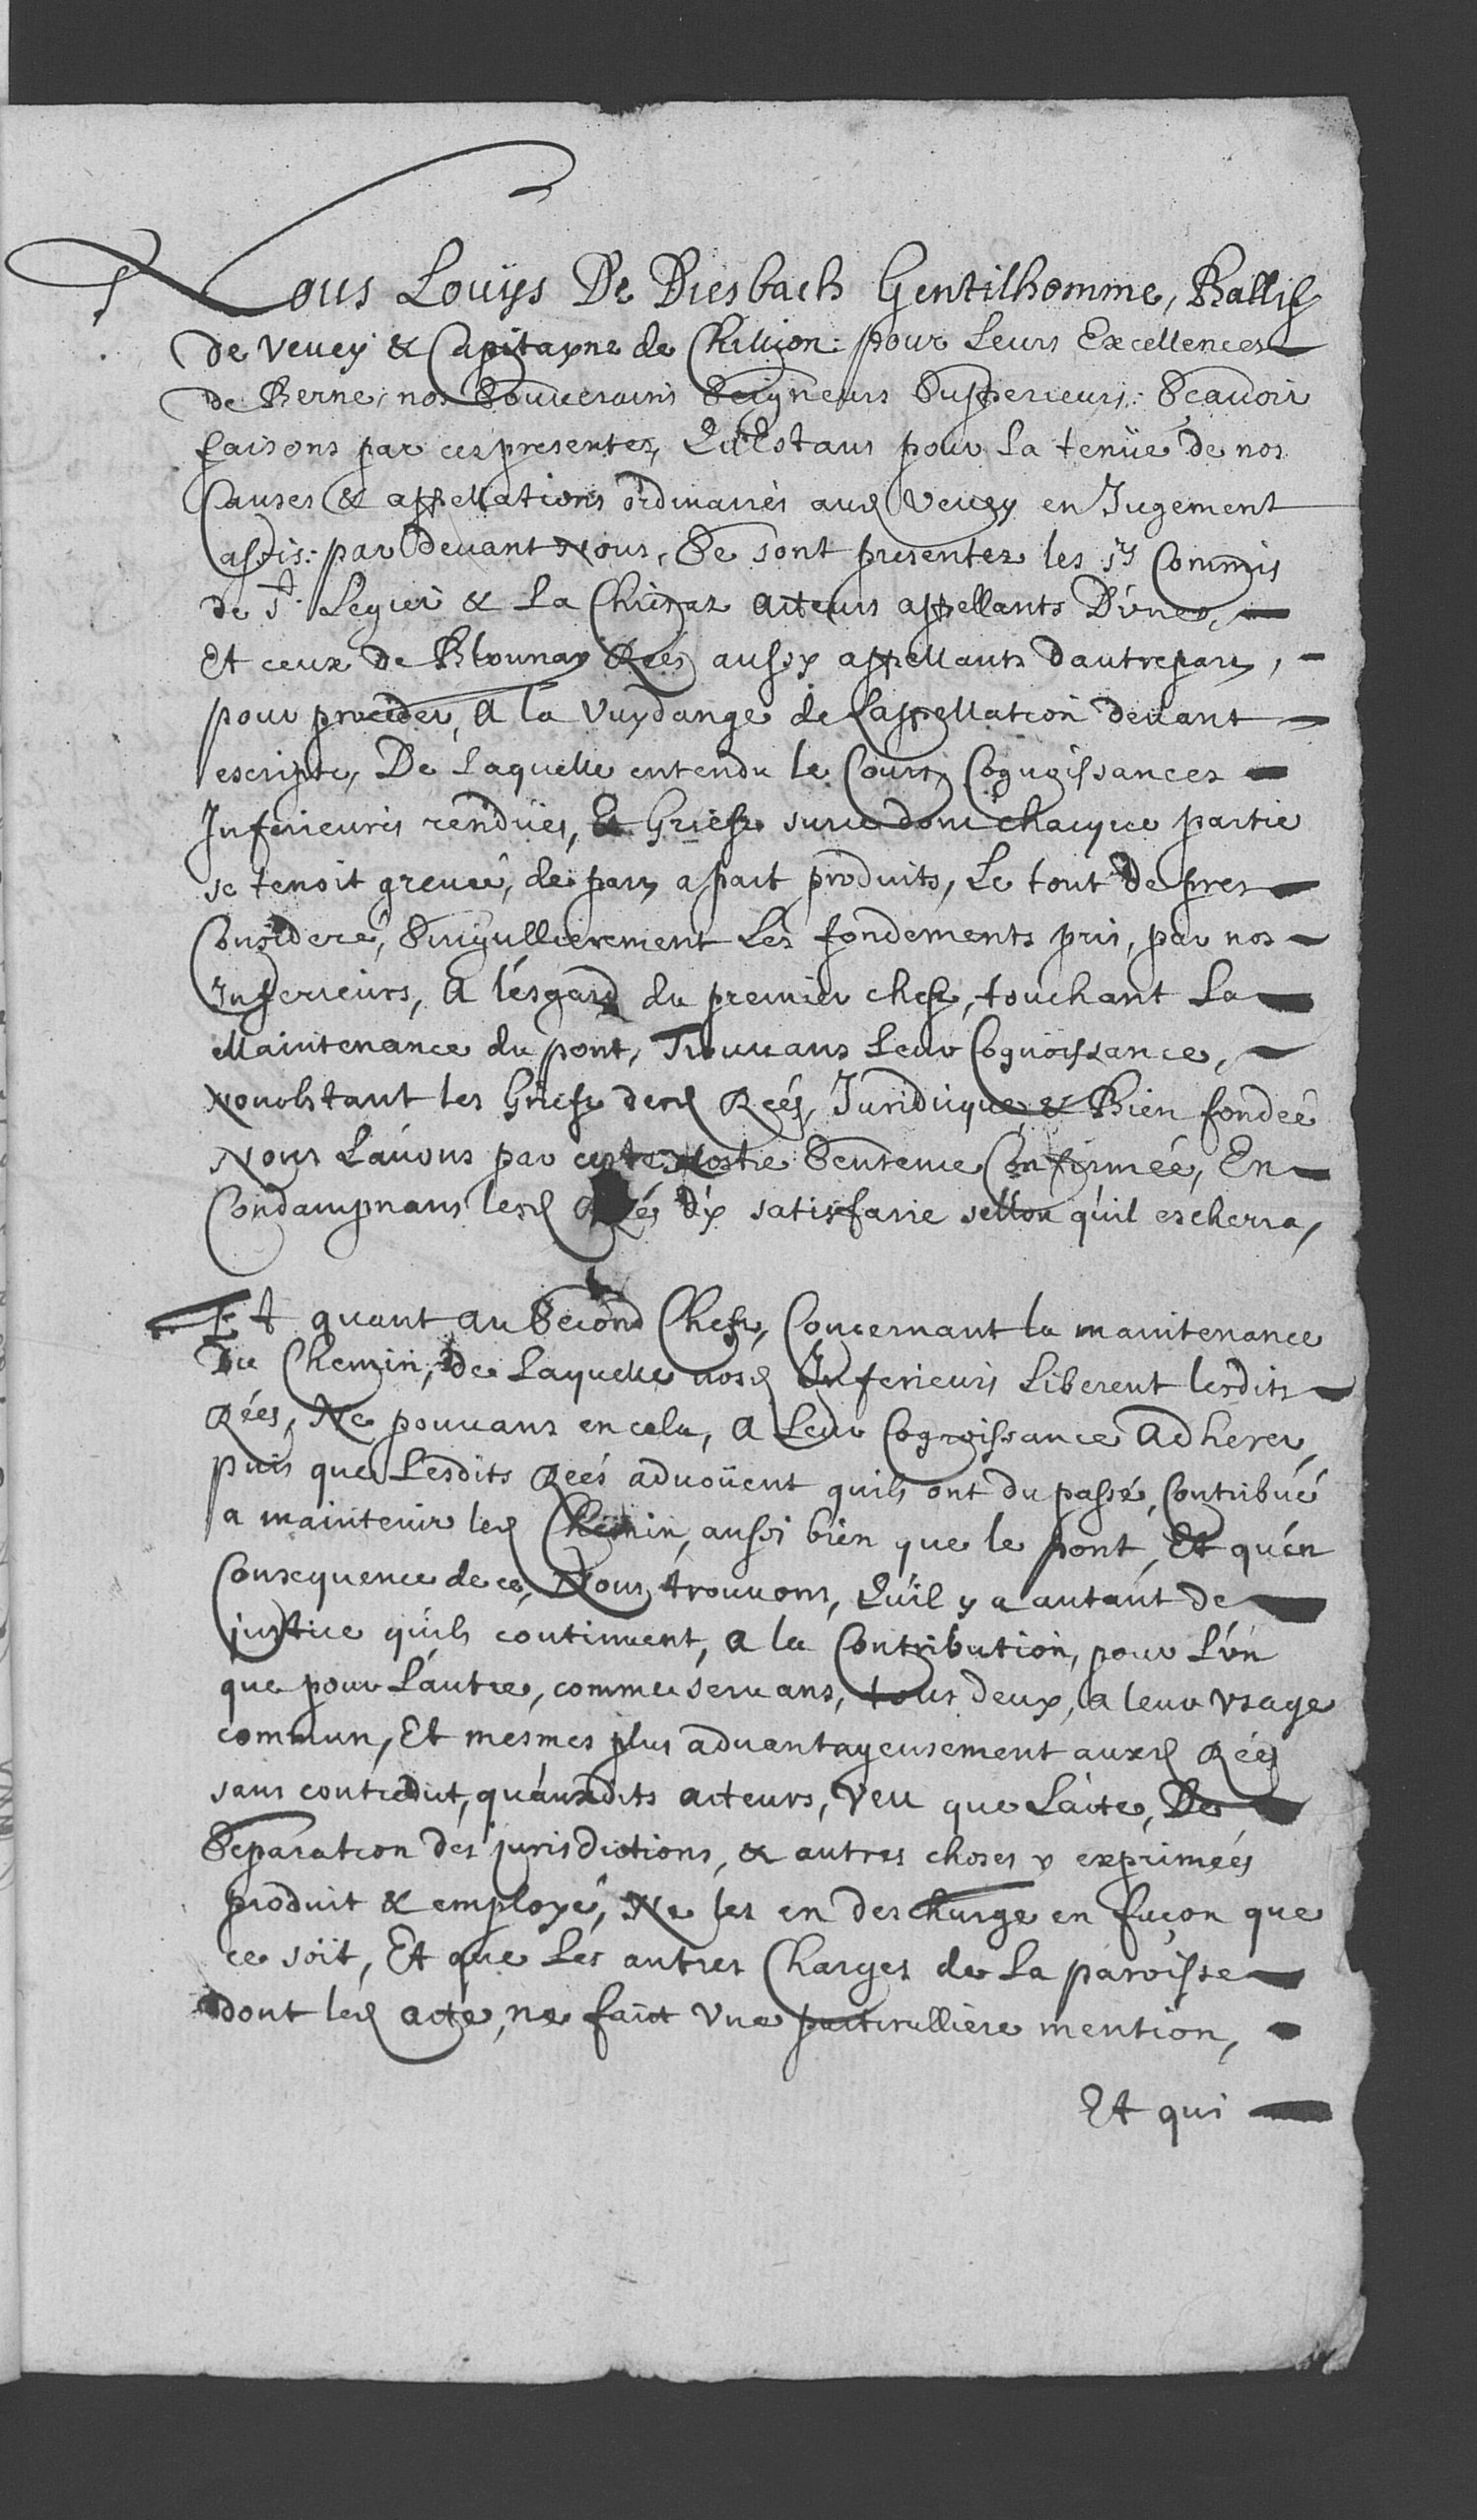 Nous Louÿs De Diesbach Gentilhomme, Ballif
de Veuey & Capitayne de Chillion: pour Leurs Excellences
de Berne, nos Souuerains Seigneurs Supperieurs: Sçauoir
faisons par ces presentes, Qu'Estans pour La tenüe de nos
Causes & appellations ordinaires aud Veuey en Jugement
assis: par Deuant Nous, Se sont presentez les Srs Commis
de St. Legier & La Chiesaz acteurs appellants D'vne,
Et ceux de Blounay Rées aussy appellants dautrepart,
pour proceder, a la Vuydange de Lappellation deuant
escripte, De Laquelle entendu le Cours, Cognoissances
Inferieures rendües, Et Griefz surce dont chacque partie
se tenoit greueé, de part a part produits, Le tout de pres
Consideré, Singullierement Les fondements pris, par nos
Inferieurs, A l'ésgard du premier chefz, touchant La
Maintenance du pont, Trouuans Leur Cognoissance,
Nonobstant les Griefz desd Rées, Juridicque, & Bien fondeé
Nous L'auons par ceste Nostre Sentence Confirmeé, En
Condampnans lesd Rées d'y satisfaire sellon qu'il escherra,
Et quant au Second Chefz, Concernant la maintenance
Du Chemin, de Laquelle nosd Inferieurs Liberent lesdits
Rées, Ne pouuans en cela, A Leur Cognoissance Adherer,
puis que Lesdits Reés aduoüent quils ont du passé, Contribué
a maintenir led Chemin, aussi bien que le pont, Et qu'en
Consequence de ce, Nous trouuons, Qu'il y a autant de
justice quils continuent, a la Contribution, pour L'vn
que pour L'autre, comme seruans, tous deux, a leur vsage
commun, Et mesmes plus aduantageusement auxd Rées
sans contredit, qu'auxdits acteurs, Veu que L'acte, De
Separation des jurisdictions, & autres choses y expriméés
produit & employé, Ne les en descharge en façon que
ce soit, Et que Les autres Charges de La paroisse
dont led acte, ne faict Vne particulliere mention,
Et qui